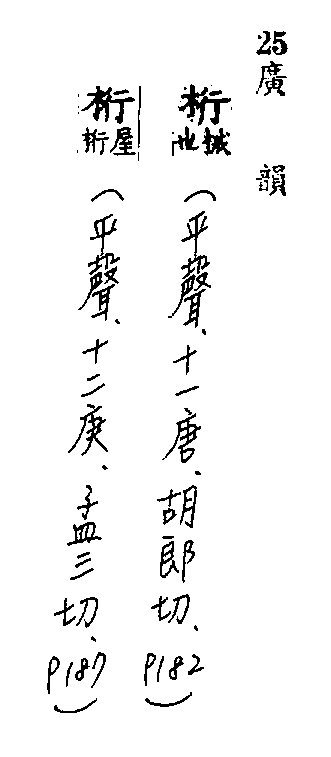 25廣韻
桁械也(平聲、十一唐、胡郎切、P182)
桁屋桁(平聲、十二庚、孟三切、P187)